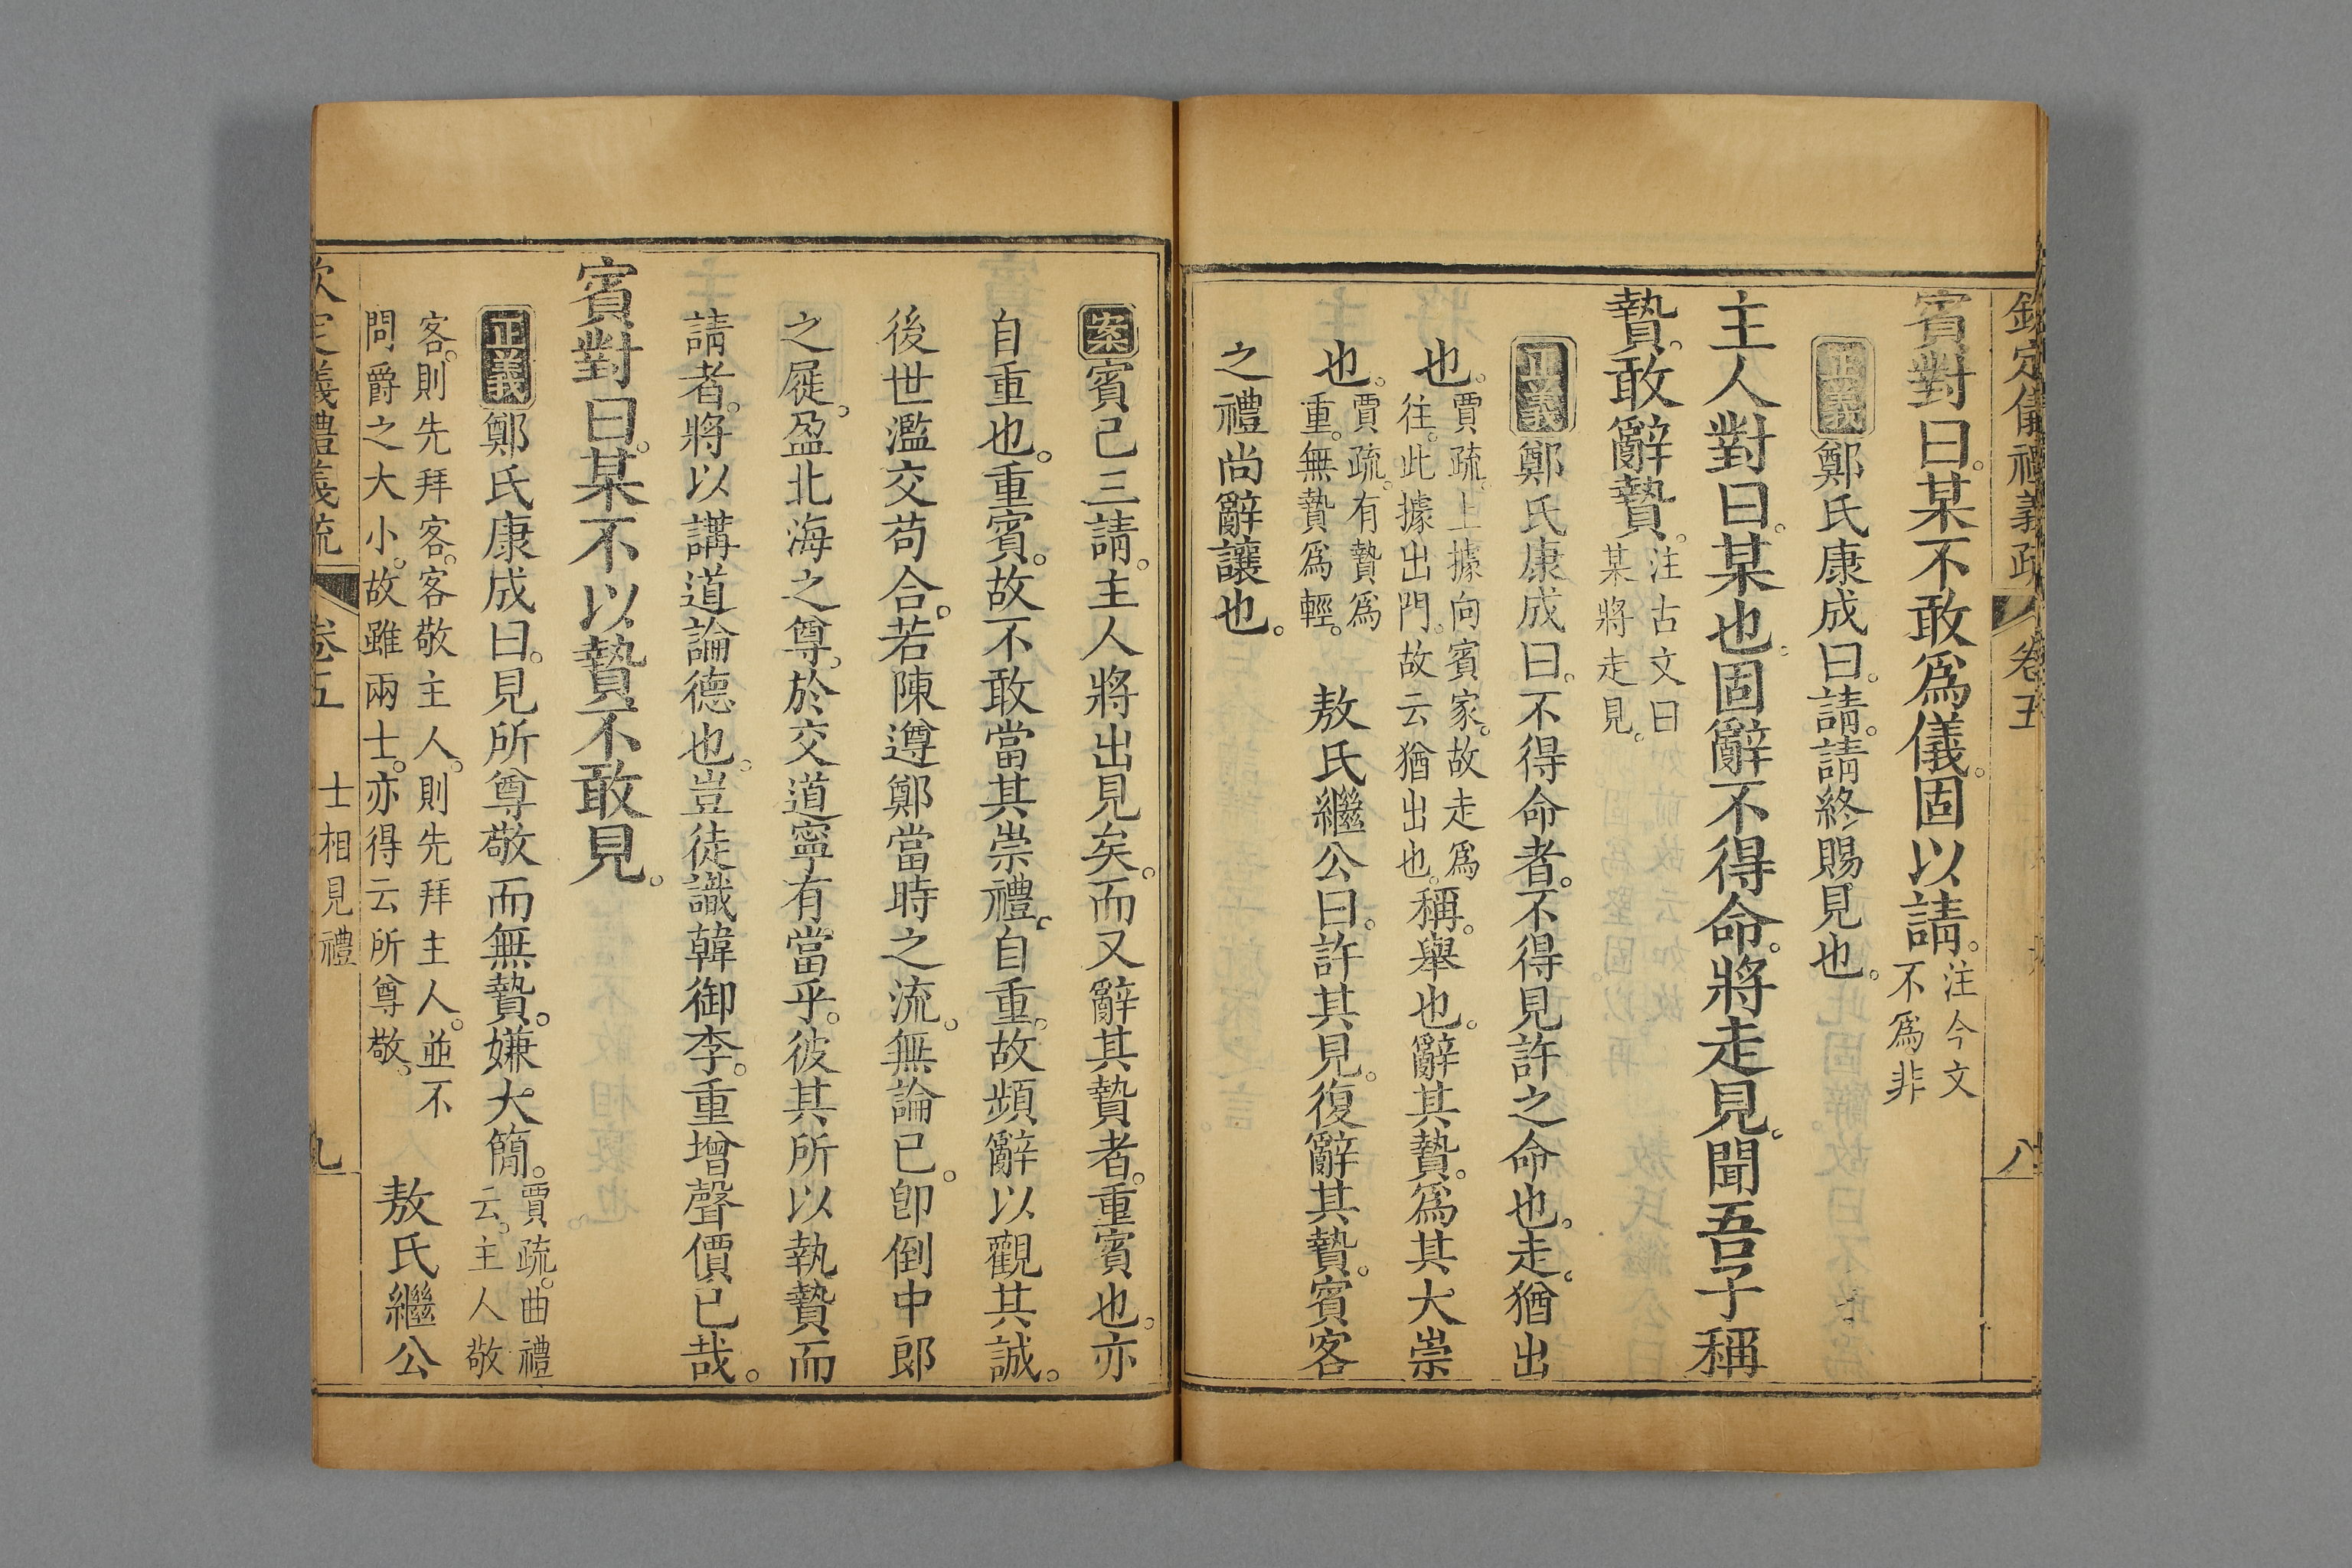 欽定儀禮義疏 卷五 八
賓對曰。某不敢爲儀。固以請。注今文
不爲非
正義鄭氏康成曰。請。請終賜見也。
主人對曰。某也。固辭不得命。將走見。聞吾子稱
贄。敢辭贄。注古文曰
某將走見。
正義鄭氏康成曰。不得命者。不得見許之命也。走。猶出
也。賈疏。上據向賓家。故走爲
往。此據出門。故云猶出也。稱。舉也。辭其贄。爲其大崇
也。賈疏。有贄爲
重。無贄爲輕。 敖氏繼公曰。許其見。復辭其贄。賓客
之禮尚辭讓也。
案賓已三請。主人將出見矣。而又辭其贄者。重賓也。亦
自重也。重賓。故不敢當其崇禮。自重。故頻辭以觀其誠。
後世濫交苟合。若陳遵鄭當時之流。無論已。卽倒中郎
之屣。盈北海之尊。於交道寧有當乎。彼其所以執贄而
請者。將以講道論德也。豈徒識韓御李。重增聲價已哉。
賓對曰。某不以贄。不敢見。
正義鄭氏康成曰。見所尊敬而無贄。嫌大簡。賈疏。曲禮
云。主人敬
客。則先拜客。客敬主人。則先拜主人。並不
問爵之大小。故雖兩士。亦得云所尊敬。 敖氏繼公
欽定儀禮義疏 卷五 士相見禮 九